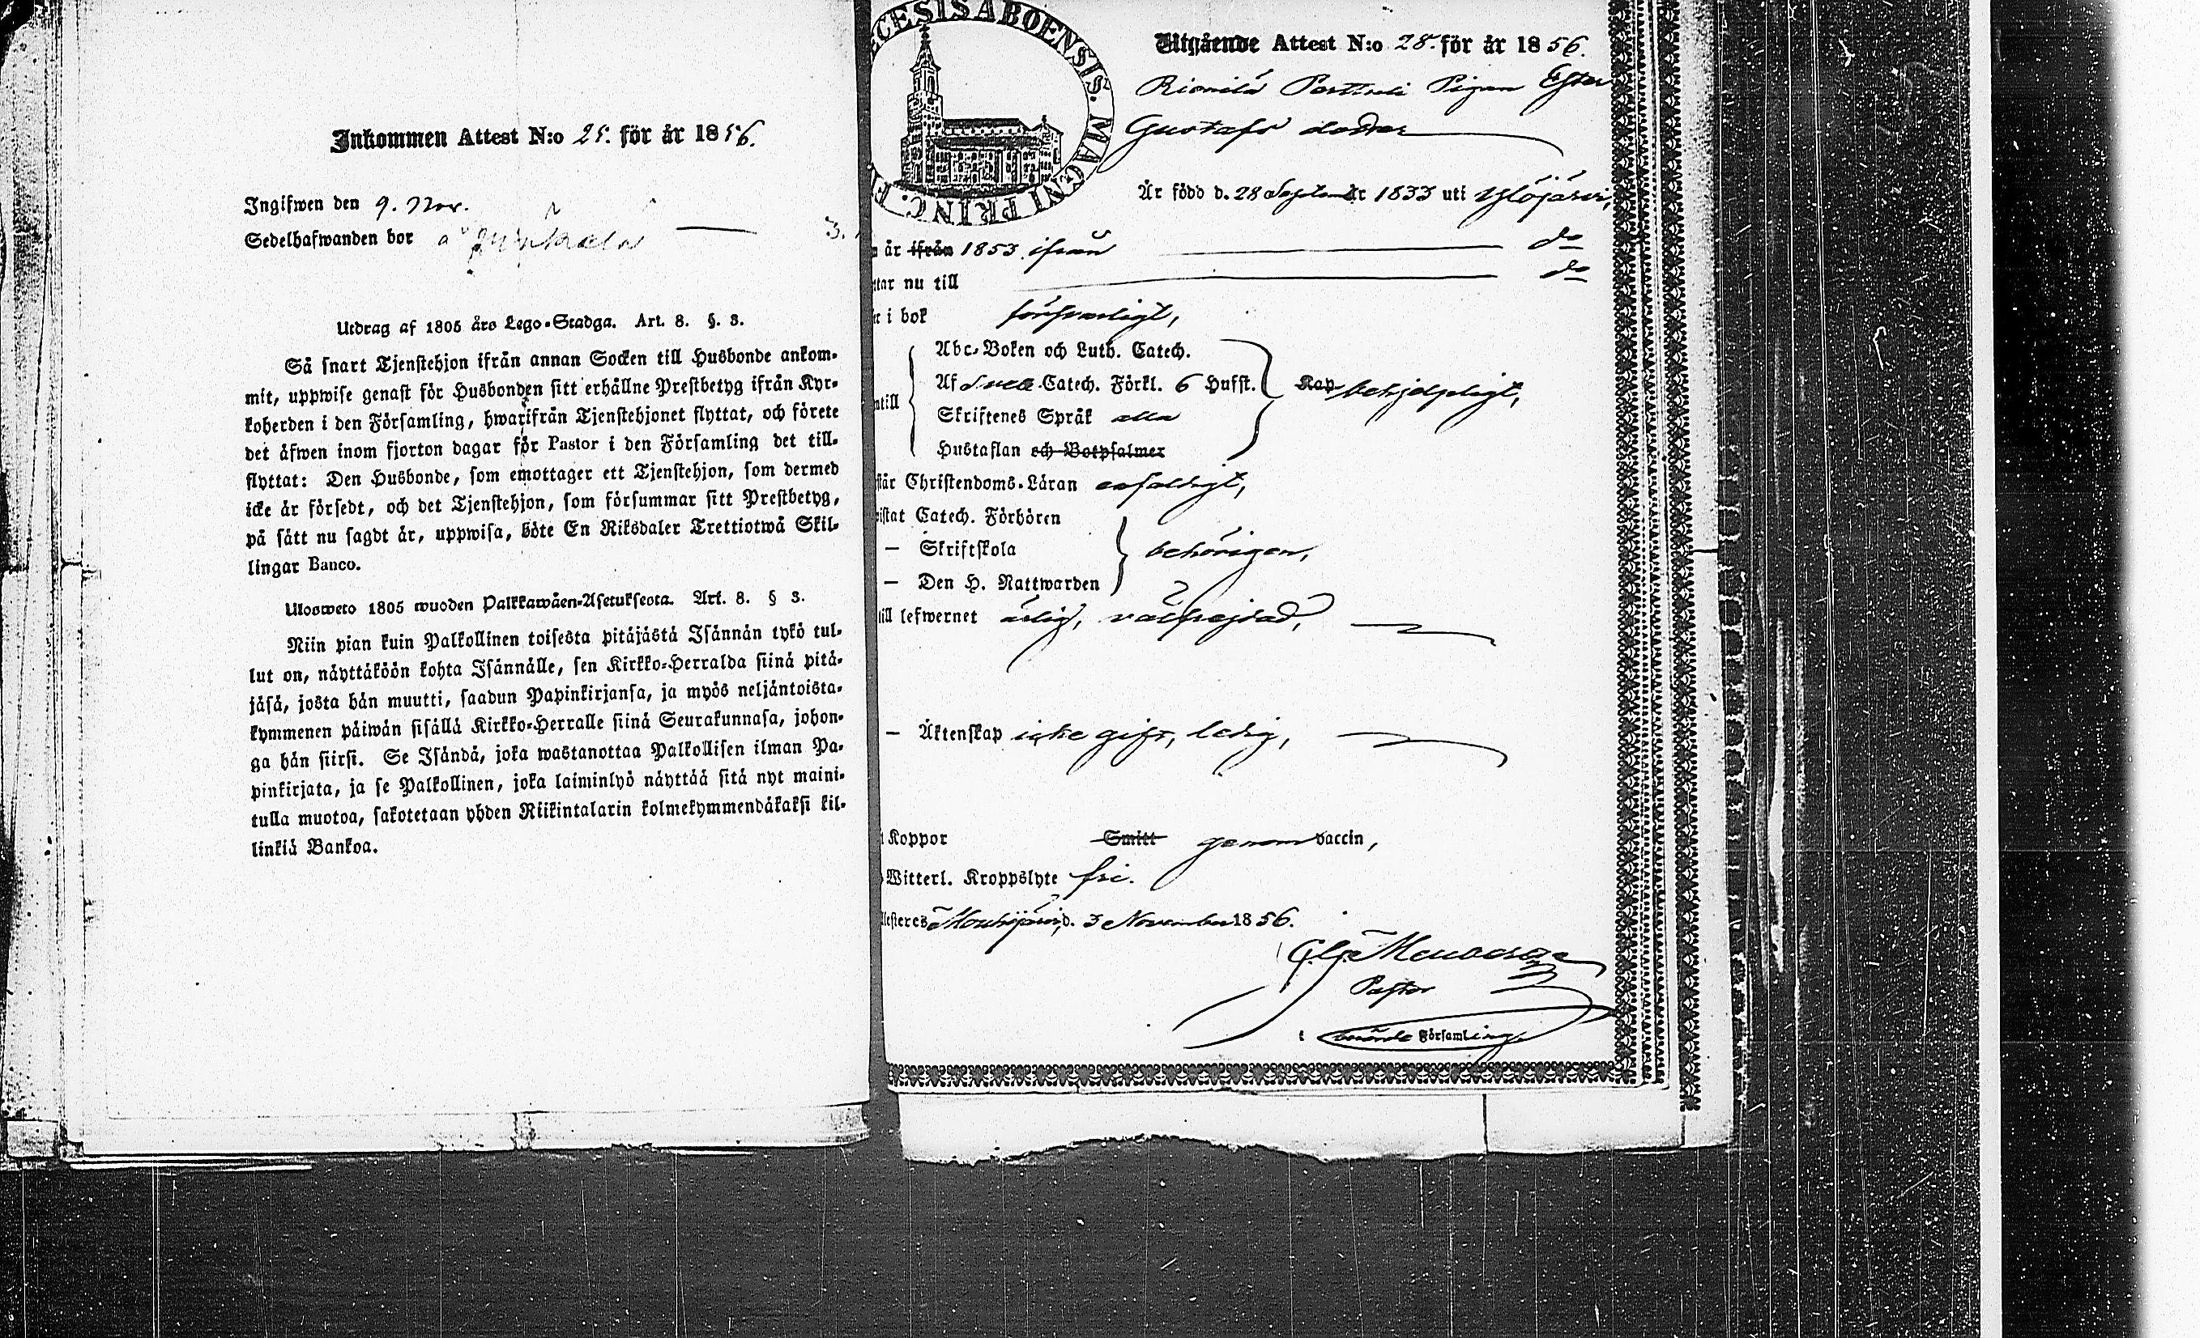 Inkommen Attest N:o 25. för år 1856.
Ingifwen den 9. Nov.
Sedelhafwanden bor å
3.
Utdrag af 1805 års Lego-Stadga. Art. 8. §. 3.
Så snart Tjenstehjon ifrån annan Socken till Husbonde ankom-
mit, uppwise genast för Husbonden sitt erhållne Prestbetyg ifrån Kyr-
koherden i den Församling, hwarifrån Tjenstehjonet flyttat, och förete
det äfwen inom fjorton dagar för Pastor i den Församling det till-
flyttat: Den Husbonde, som emottager ett Tjenstehjon, som dermed
icke är försedt, och det Tjenstehjon, som försummar sitt Prestbetyg,
på sätt nu sagdt är, uppwisa, böte En Riksdaler Trettiotwå Skil-
lingar Banco.
Ulosweto 1805 wuoden Palkkawäen-Asetuksesta. Art. 8. § 3.
Niin pian kuin Palkollinen toisesta pitäjästä Isännän tykö tul-
lut on, näyttäköön kohta Isännälle, sen Kirkko-Herralda siinä pitä-
jäsä, josta hän muutti, saadun Papinkirjansa, ja myös neljäntoista-
kymmenen päiwän sisällä Kirkko-Herralle siinä Seurakunnasa, johon-
ga hän siirsi. Se Isändä, joka wastanottaa Palkollisen ilman Pa-
pinkirjata, ja se Palkollinen, joka laiminlyö näyttää sitä nyt maini-
tulla muotoa, sakotetaan yhden Riikintalarin kolmekymmendäkaksi kil-
linkiä Bankoa.
ECESIS ABOENSIS. MAGNI PRINC. F
Utgående Attest N:o 28. för år 1856.
Pigan Ester
Gustafs dotter
År född d. 28 September 1833 uti Ylöjärvi,
år ifrån 1853 ifrån do
tar nu till do
i bok försvarligt,
Abc-Boken och Luth. Catech.
Af Sveb. Catech. Förkl. 6 Hufst. Kap behjelpligt,
ntill Skriftenes Språk alla
Hustaflan och Botpsalmer
står Christendoms-Läran enfaldigt,
istat Catech. Förhören
— Skriftskola behörigen,
— Den H. Nattwarden
till lefwernet ärlig, välfrejdad,
— Äktenskap icke gift, ledig,
Koppor Smitt genom vaccin,
Witterl. Kroppslyte fri.
Mouhijärvi, d. 3 November 1856.
Pastor
i Församling.